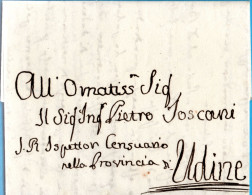 All' Ornatiss Sig
Il Sig Ing Pietro Toscani
I. R. Ispettor Censuario
nella Provincia di
Udine